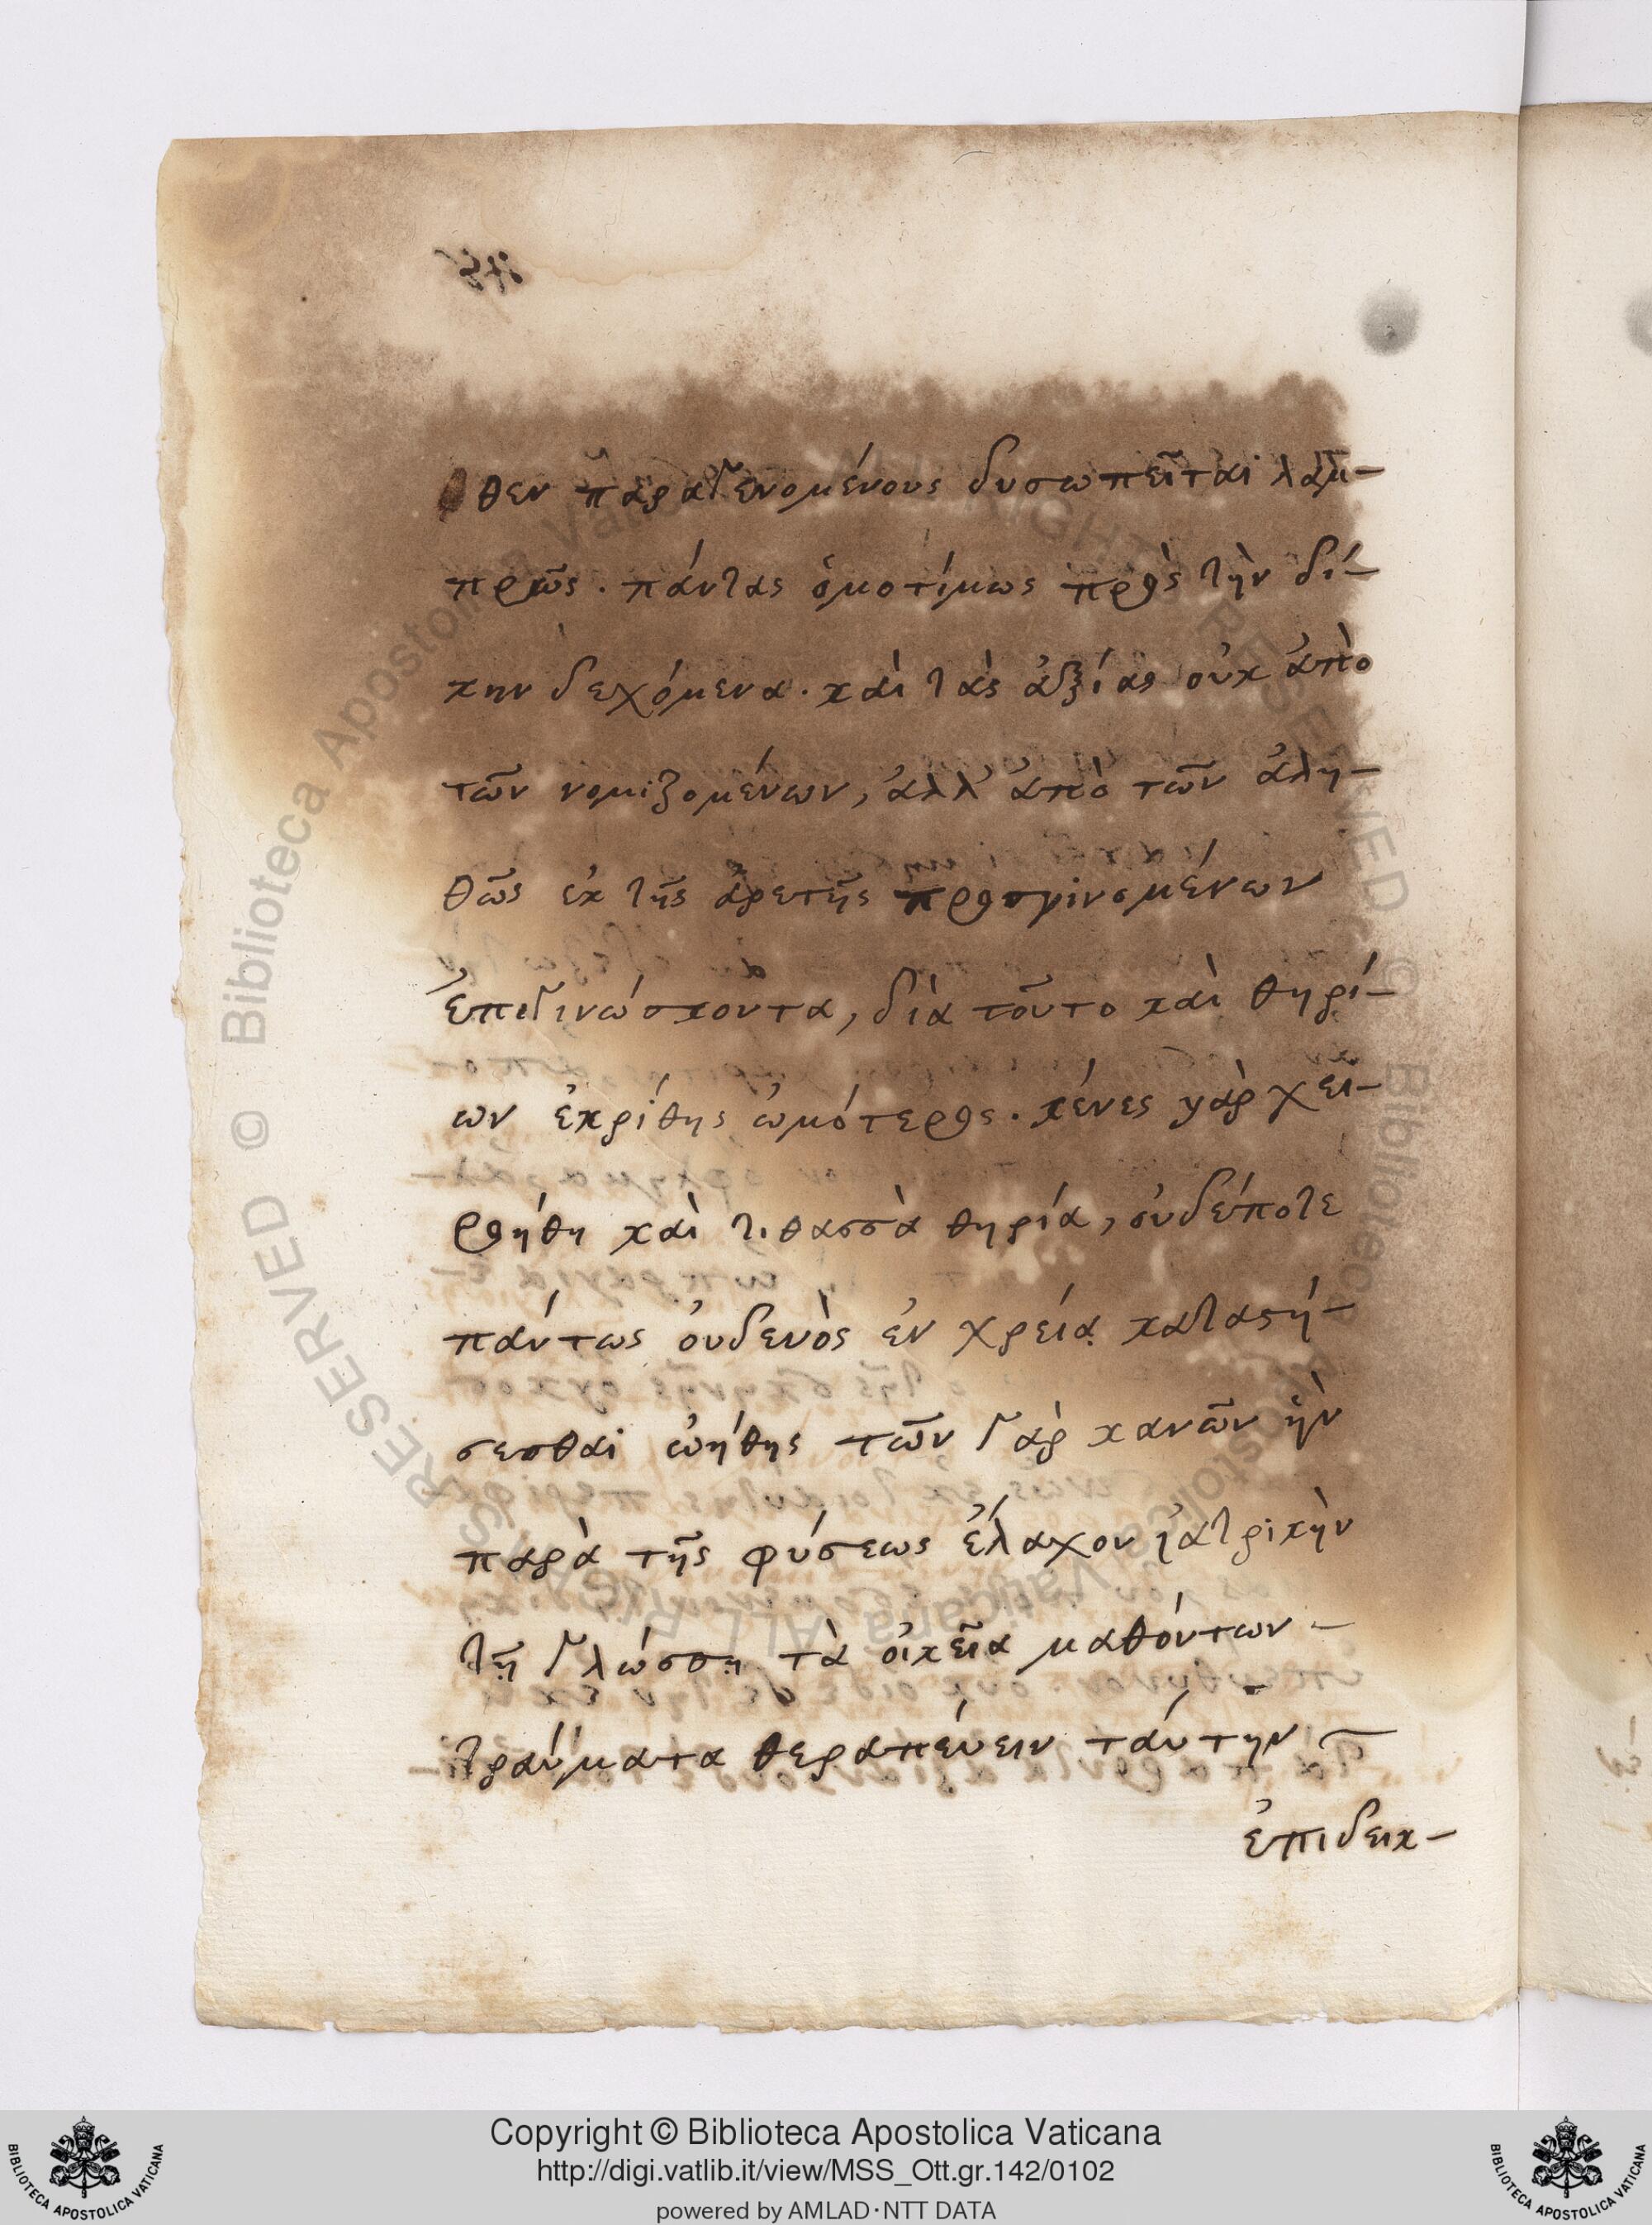 ὅθεν παραγενομένους δυσωπεῖται λαμ-
πρῶς. πάντας ὁμοτίμως πρὸς τὴν δί-
κην δεχόμενα. καὶ τὰς ἀξίας οὐκ ἀπὸ
τῶν νομιζομένων, ἀλλ' ἀπὸ τῶν ἀλη-
θῶς ἐκ τῆς ἀρετῆς προσγινομένων
ἐπιγινώσκοντα, διὰ τοῦτο καὶ θηρί-
ων ἐκρίθης ὠμότερος. κένες γὰρ χει-
ροήθη καὶ τιθασσὰ θηρία, οὐδέποτε
πάντως οὐδενὸς ἐν χρείᾳ καταστή-
σεσθαι ὠήθης τῶν γὰρ κανῶν ἣν
παρὰ τῆς φύσεως ἔλαχον ἰατρικὴν
τῇ γλώσσῃ τὰ οἰκεῖα μαθόντων -
τραύματα θεραπεύειν ταύτην
ἐπιδεικ-
Copyright © Biblioteca Apostolica Vaticana
http://digi.vatlib.it/view/MSS_Ott.gr.142/0102
powered by AMLAD·NTT DATA